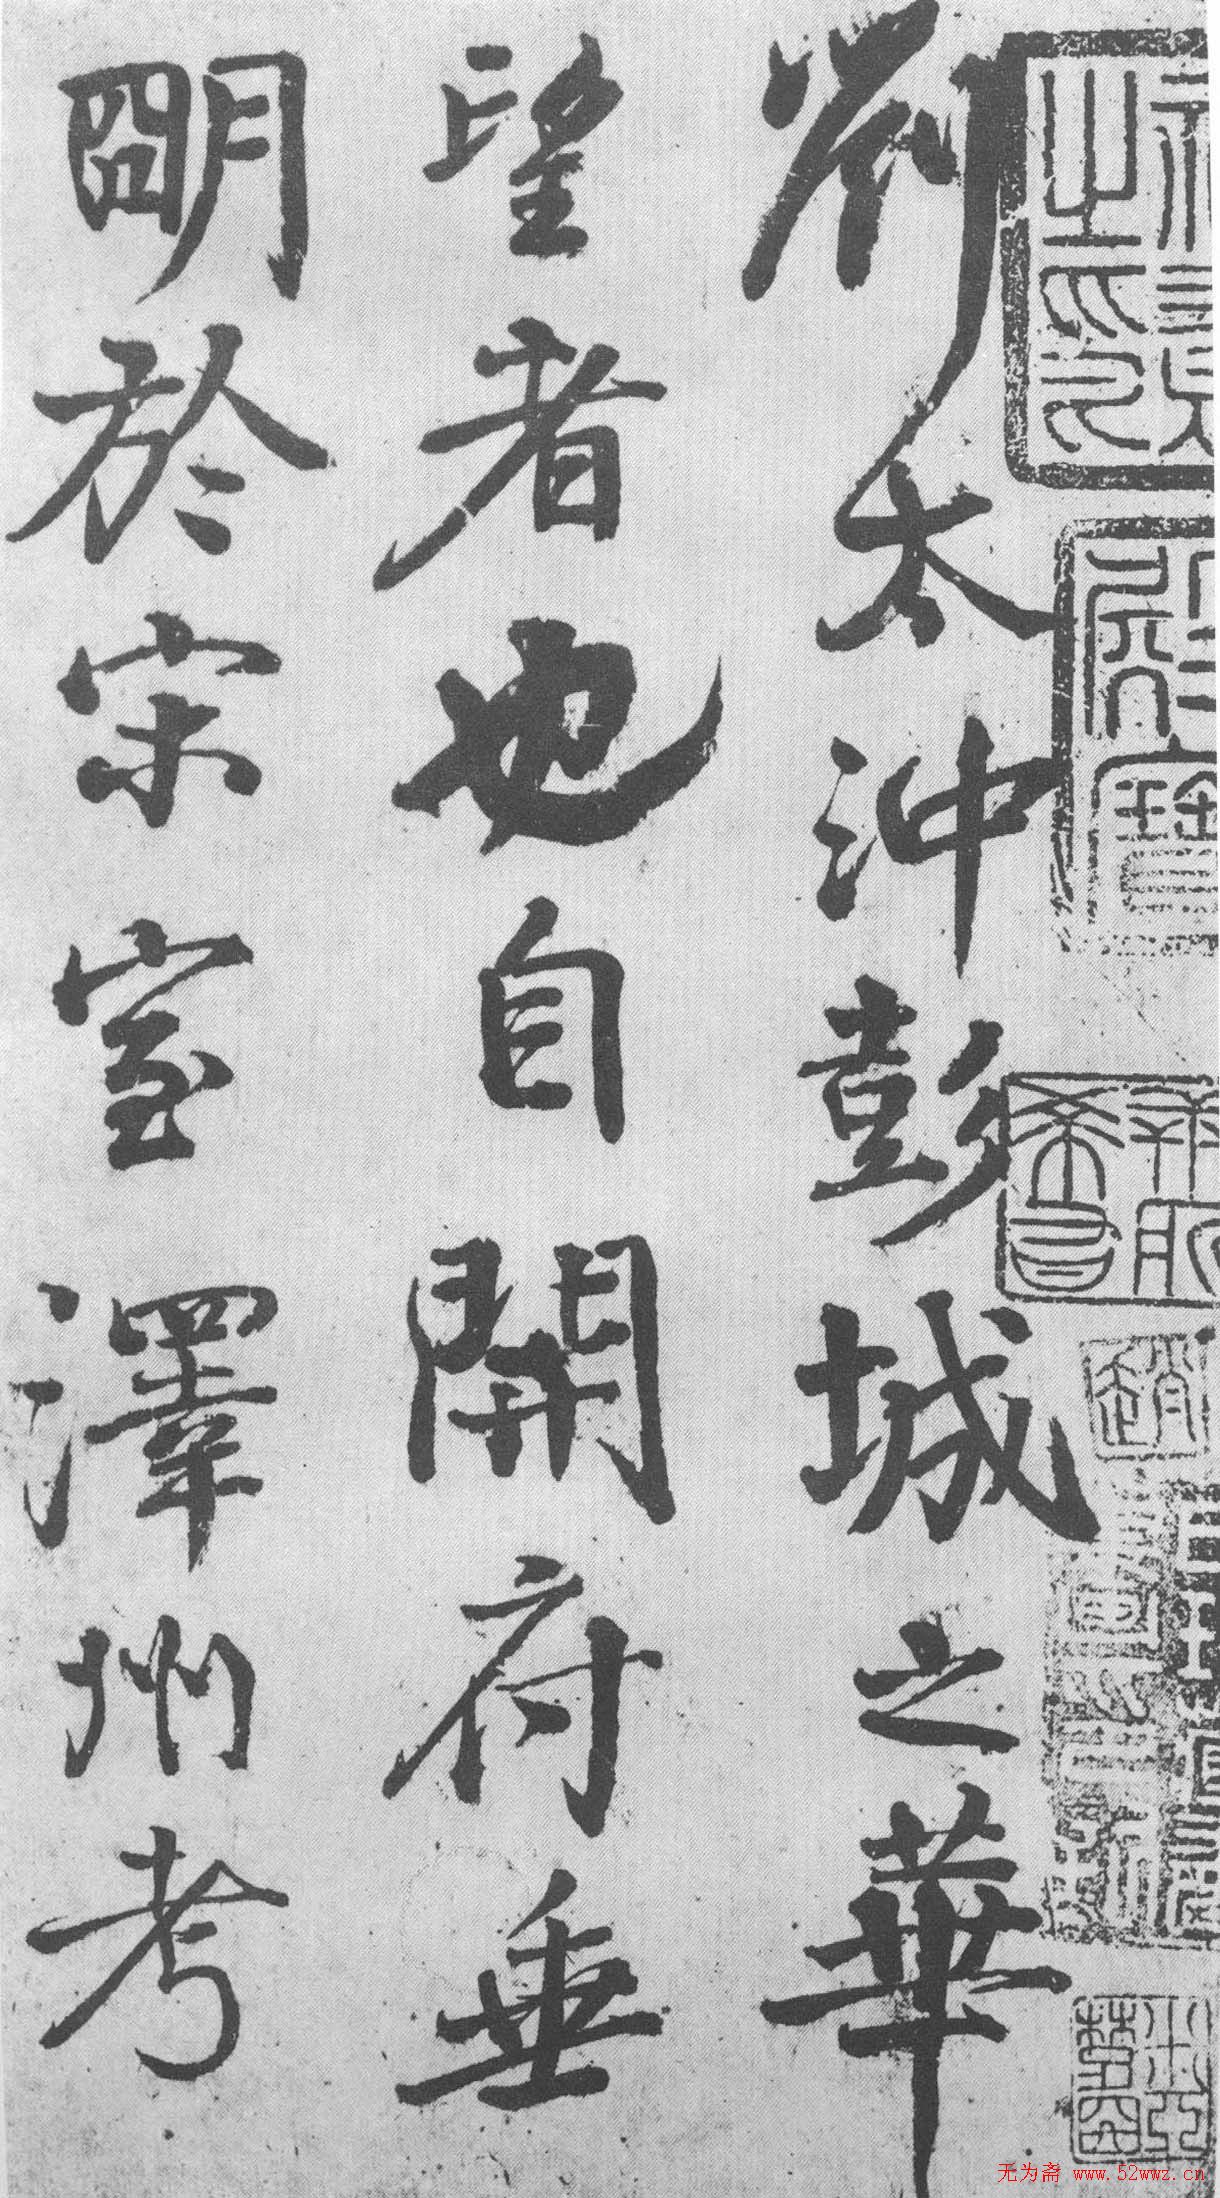 劉太沖彭城之華
望者也自開府垂
明於宋室澤州考
无为斋 www.52wwz.cn